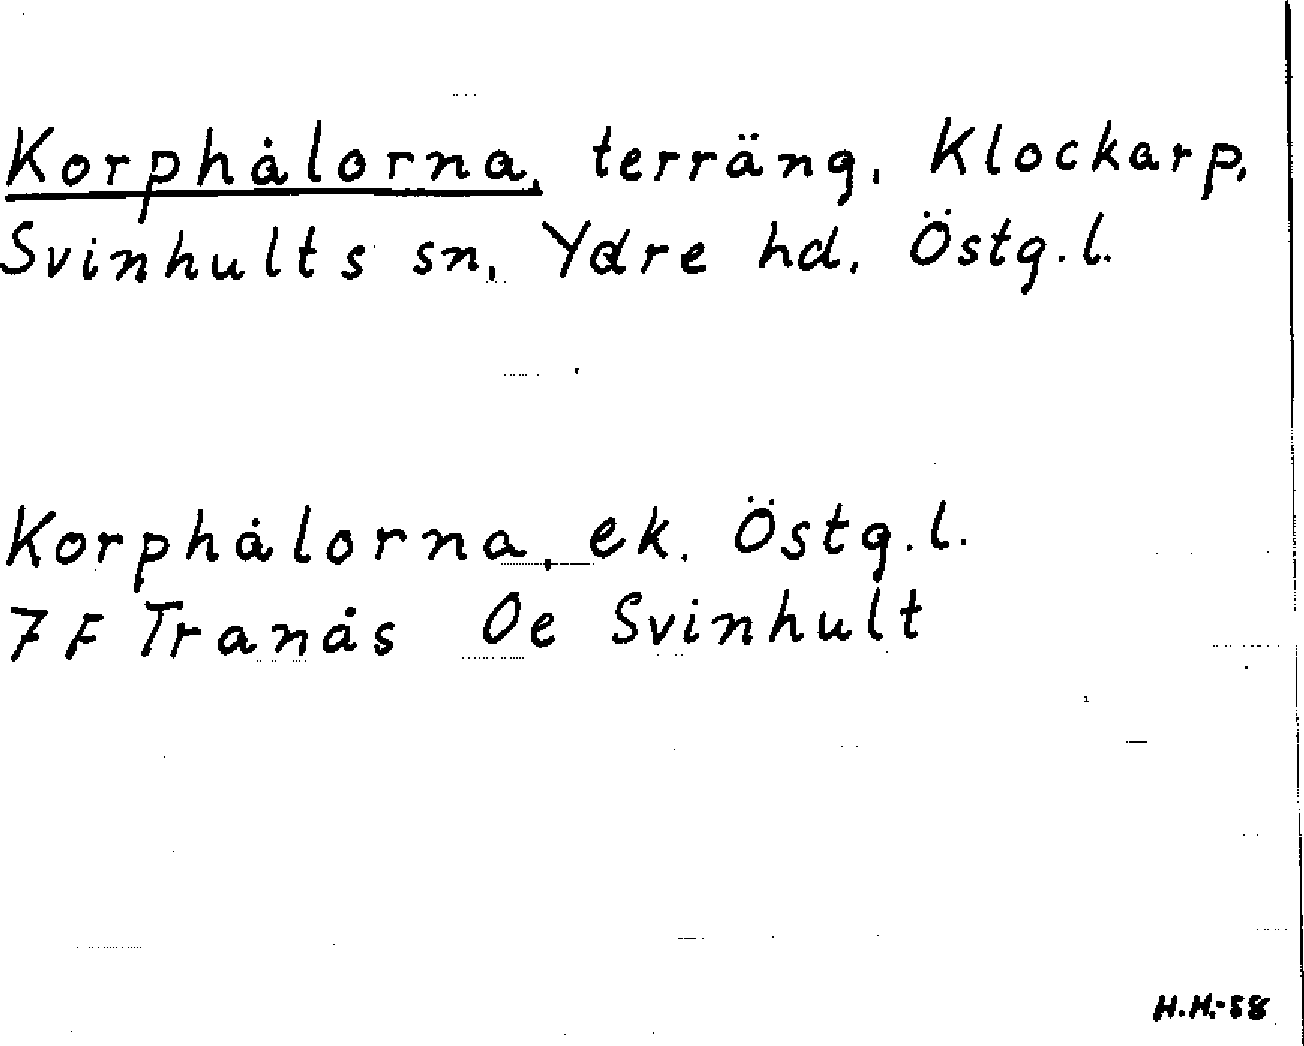 Korphålorna, terräng, Klockarp,
Svinhults sn, Ydre hd, Östg.l.
Korphålorna, ek. Östg.l.
7F Tranås Oe Svinhult
H.H.-58